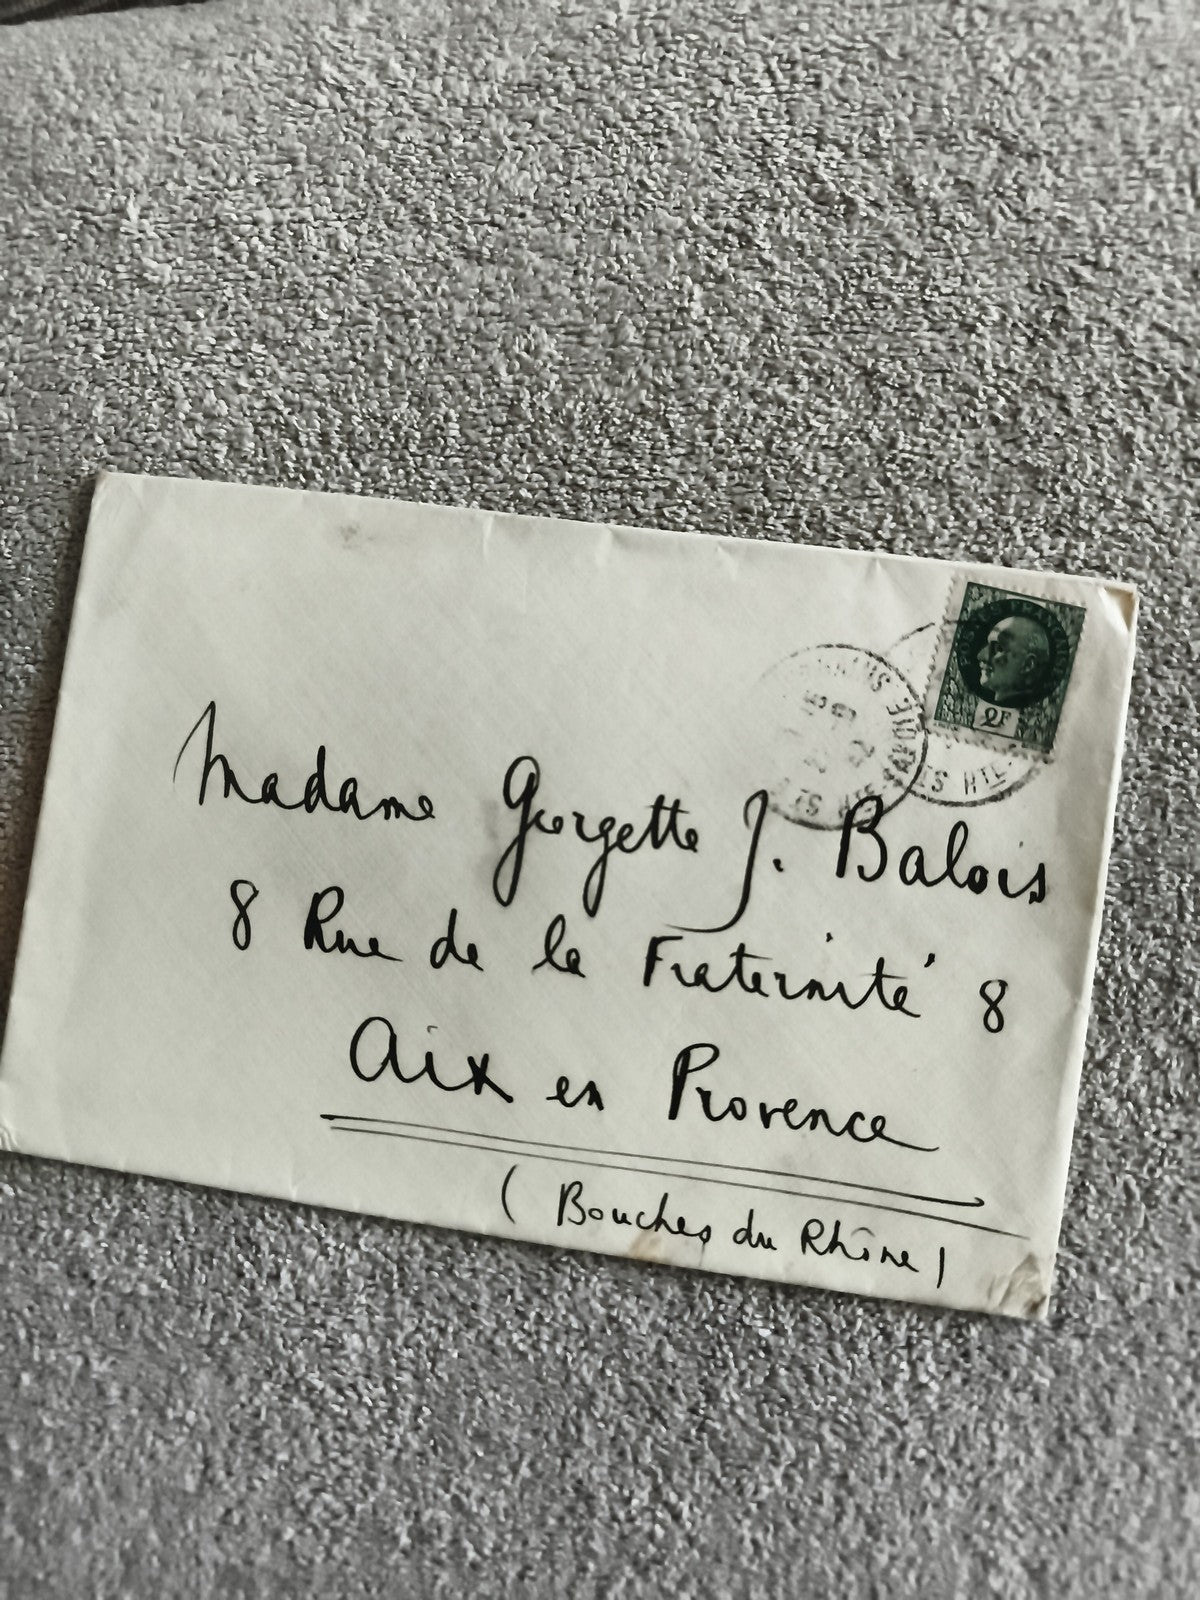 POSTES FRANÇAISES
2F
HTE-SAVOIE
Madame Georgette J. Balois
8 Rue de la Fraternité 8
Aix en Provence
(Bouches du Rhône)